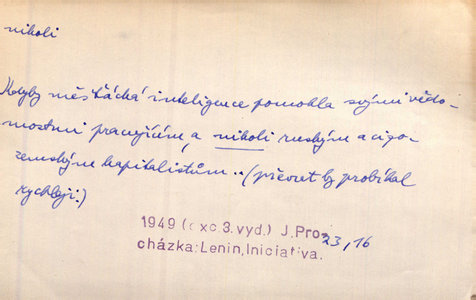 nikoli
Kdyby měšťácká inteligence pomohla svými vědo-
mostmi pracujícím, a nikoli ruským a cizo-
zemským kapitalistům.. (převrat by probíhal
rychleji.)
1949 (exc 3.vyd.) J.Pro-
cházka:Lenin,Iniciativa.
23,16